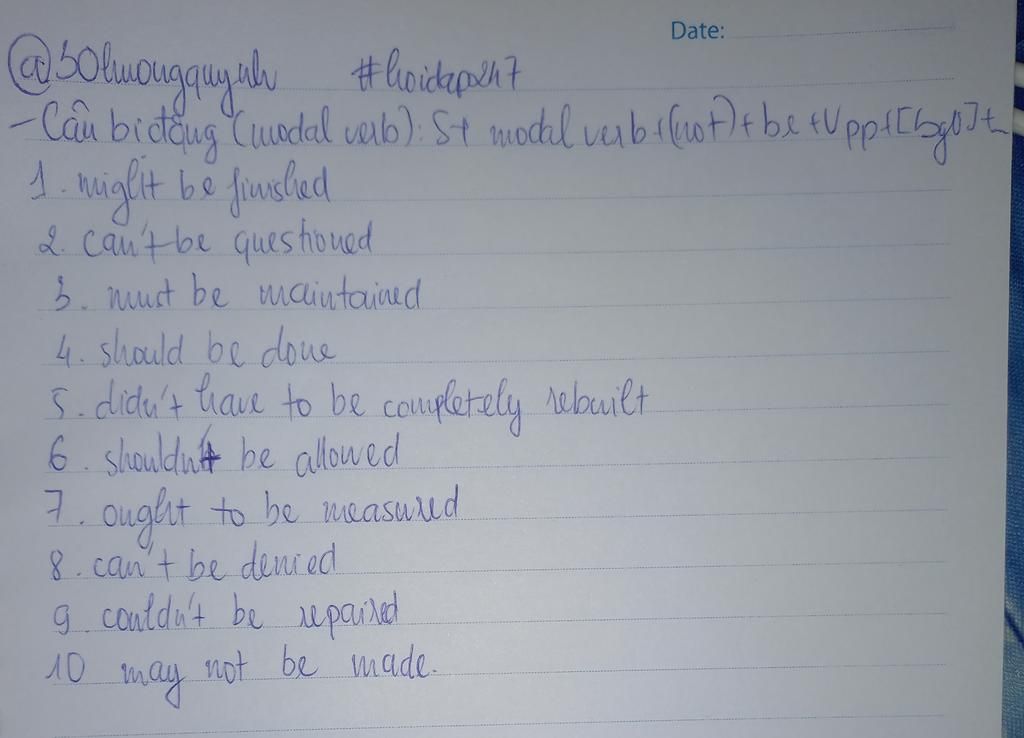 Date:
@30huongquynh #hoidap247
- Câu bị động (modal verb): S + modal verb + (not) + be + Vpp + [by O] + ...
1. might be finished
2. can't be questioned
3. must be maintained
4. should be done
5. didn't have to be completely rebuilt
6. shouldn't be allowed
7. ought to be measured
8. can't be denied
9. couldn't be repaired
10 may not be made.